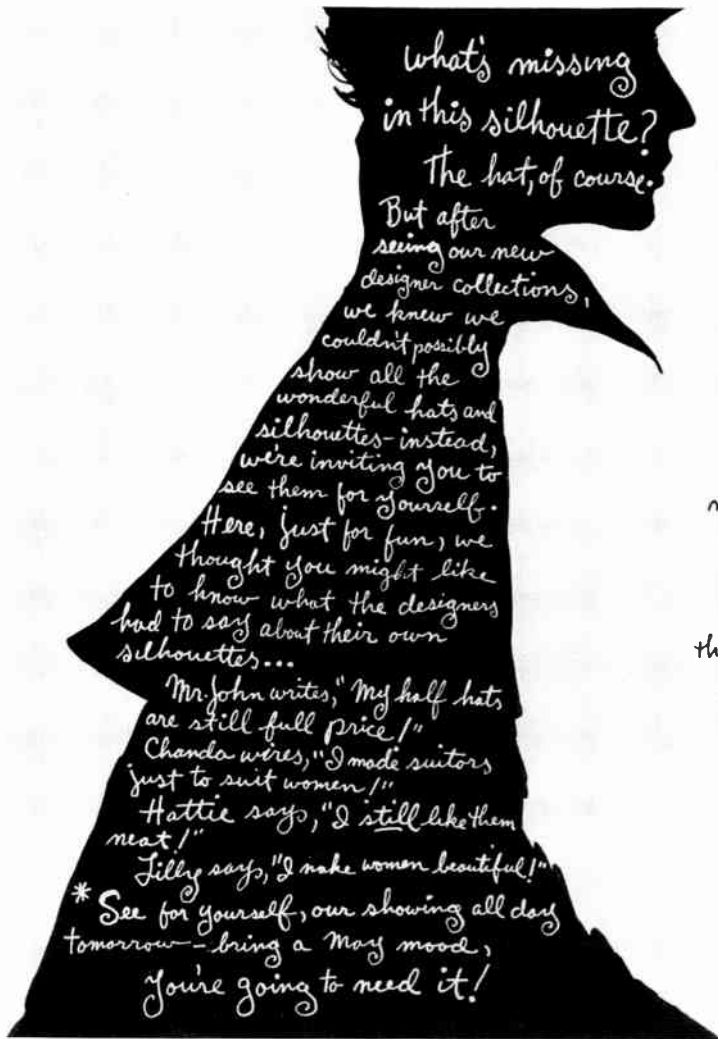 what's missing
in this silhouette?
The hat, of course.
But after
seeing our new
designer collections,
we knew we
couldn't possibly
show all the
wonderful hats and
silhouettes-instead,
we're inviting you to
see them for yourself.
Here, just for fun, we
thought you might like
to know what the designers
had to say about their own
silhouettes...
Mr. John writes, "My half hats
are still full price!"
Chanda wires, "I made suitors
just to suit women!"
Hattie says, "I still like them
neat!"
Lilly says, "I make women beautiful!"
* See for yourself, our showing all day
tomorrow - bring a May mood,
You're going to need it!
th